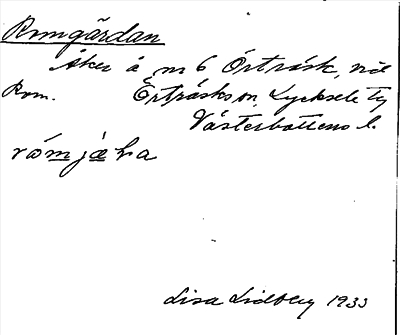 Romgärdan
Åker å nr 6 Örträsk, vid
Rom. Örträsks sn, Lycksele tg
Västerbottens l.
Lisa Lidberg 1933